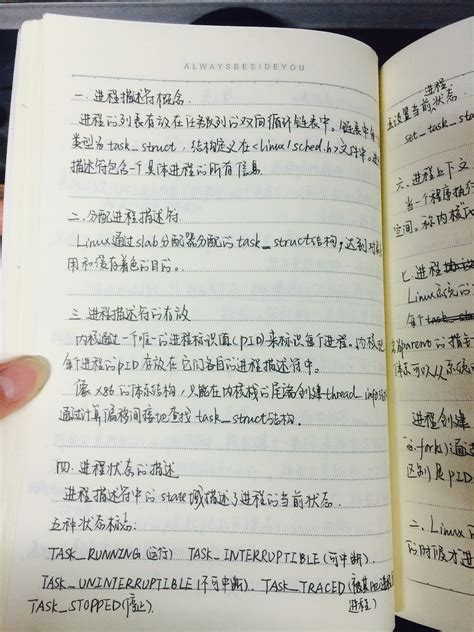 ALWAYSBESIDEYOU
一.进程描述符概念.
进程的列表存放在任务队列的双向循环链表中.链表中每
类型为task_struct,结构定义在<linux/sched.h>文件中.进
描述符包含一个具体进程的所有信息.
二.分配进程描述符
Linux通过slab分配器分配的task_struct结构,达到对象
用和缓存着色的目的..
三.进程描述符的存放
内核通过一个唯一的进程标识值(PID)来标识每个进程.内核把
每个进程的PID存放在它们各自的进程描述符中.
像x86的体系结构,只能在内核栈的尾端创建thread_info结
通过计算偏移间接地查找task_struct结构.
四.进程状态的描述
进程描述符中的state域描述了进程的当前状态.
五种状态标志:
TASK_RUNNING(运行) TASK_INTERRUPTIBLE(可中断).
TASK_UNINTERRUPTIBLE(不可中断). TASK_TRACED(被其他进程
TASK_STOPPED(停止). 进程)
进程.
五.设置当前状态.
set_task_sta
六.进程上下文
当一个程序执行
空间.称内核"代
七.进程
Linux系统的
每个task_stru
parent的指告
体系可以从系统
进程创建
fork()通过
区别是PID
二.Linux
的时候才进